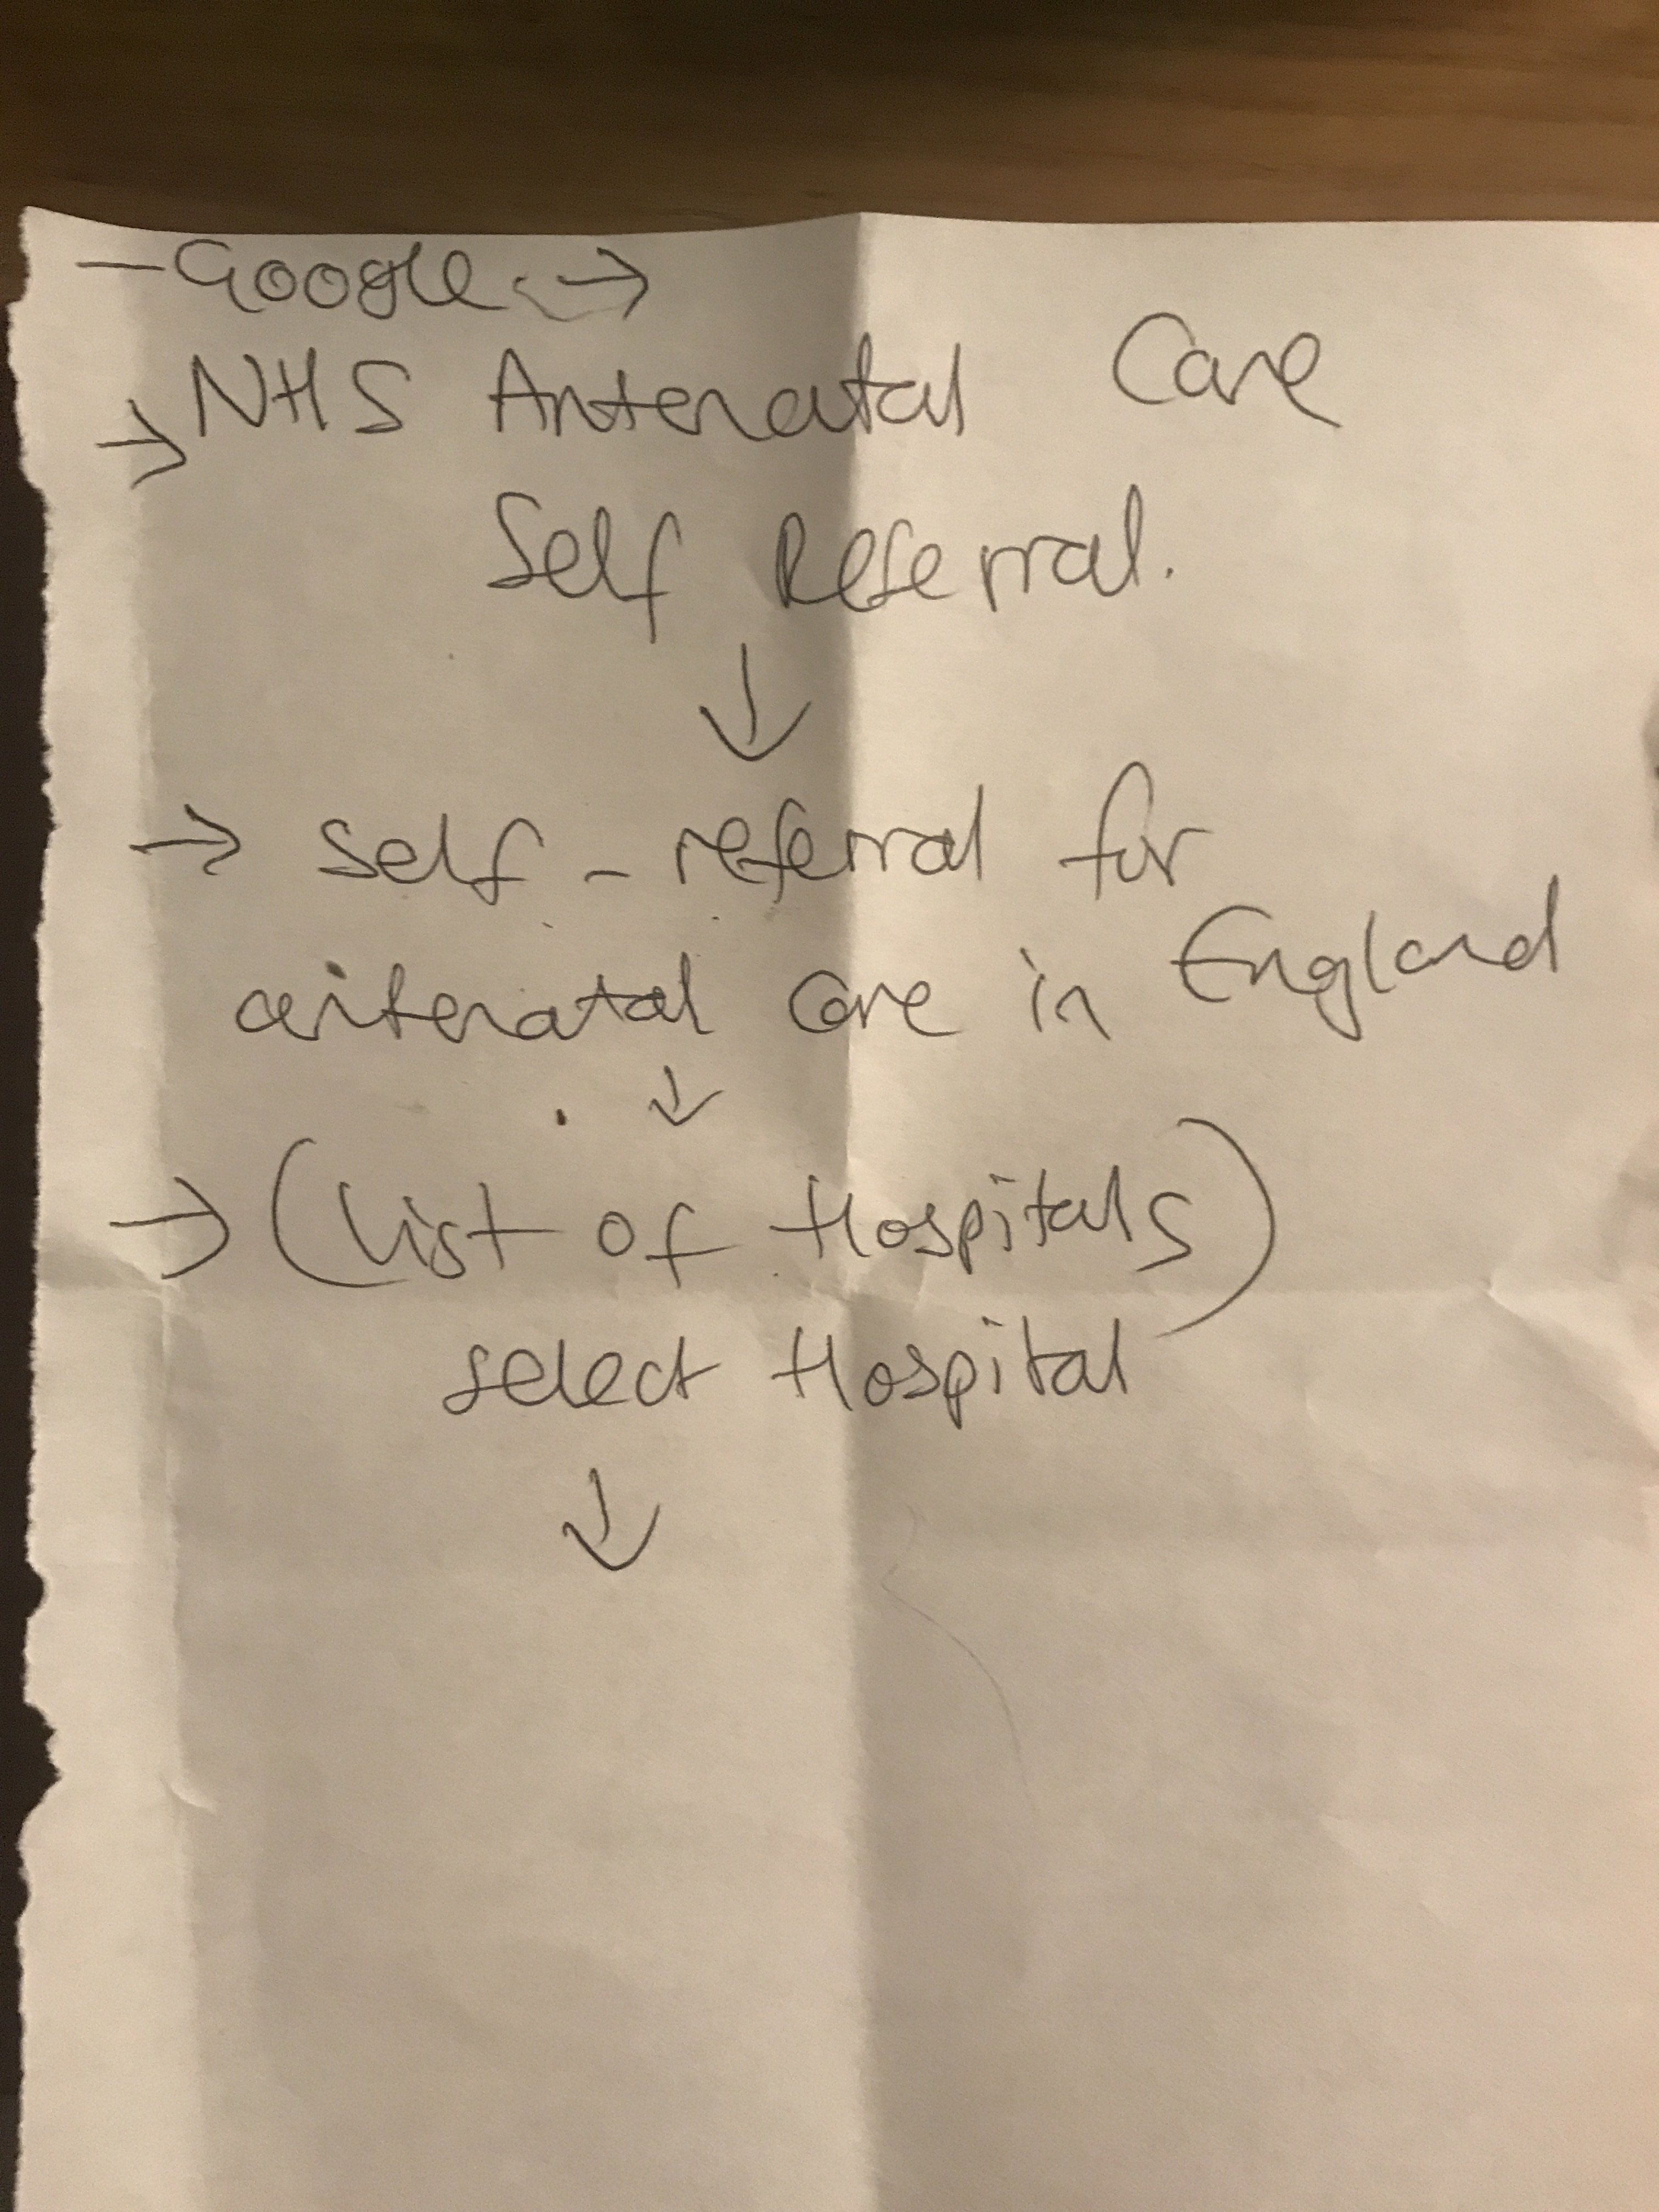 - Google →
→ NHS Antenatal Care
Self Referral.
↓
→ self - referral for
antenatal care in England
↓
→ (list of Hospitals)
select Hospital
↓